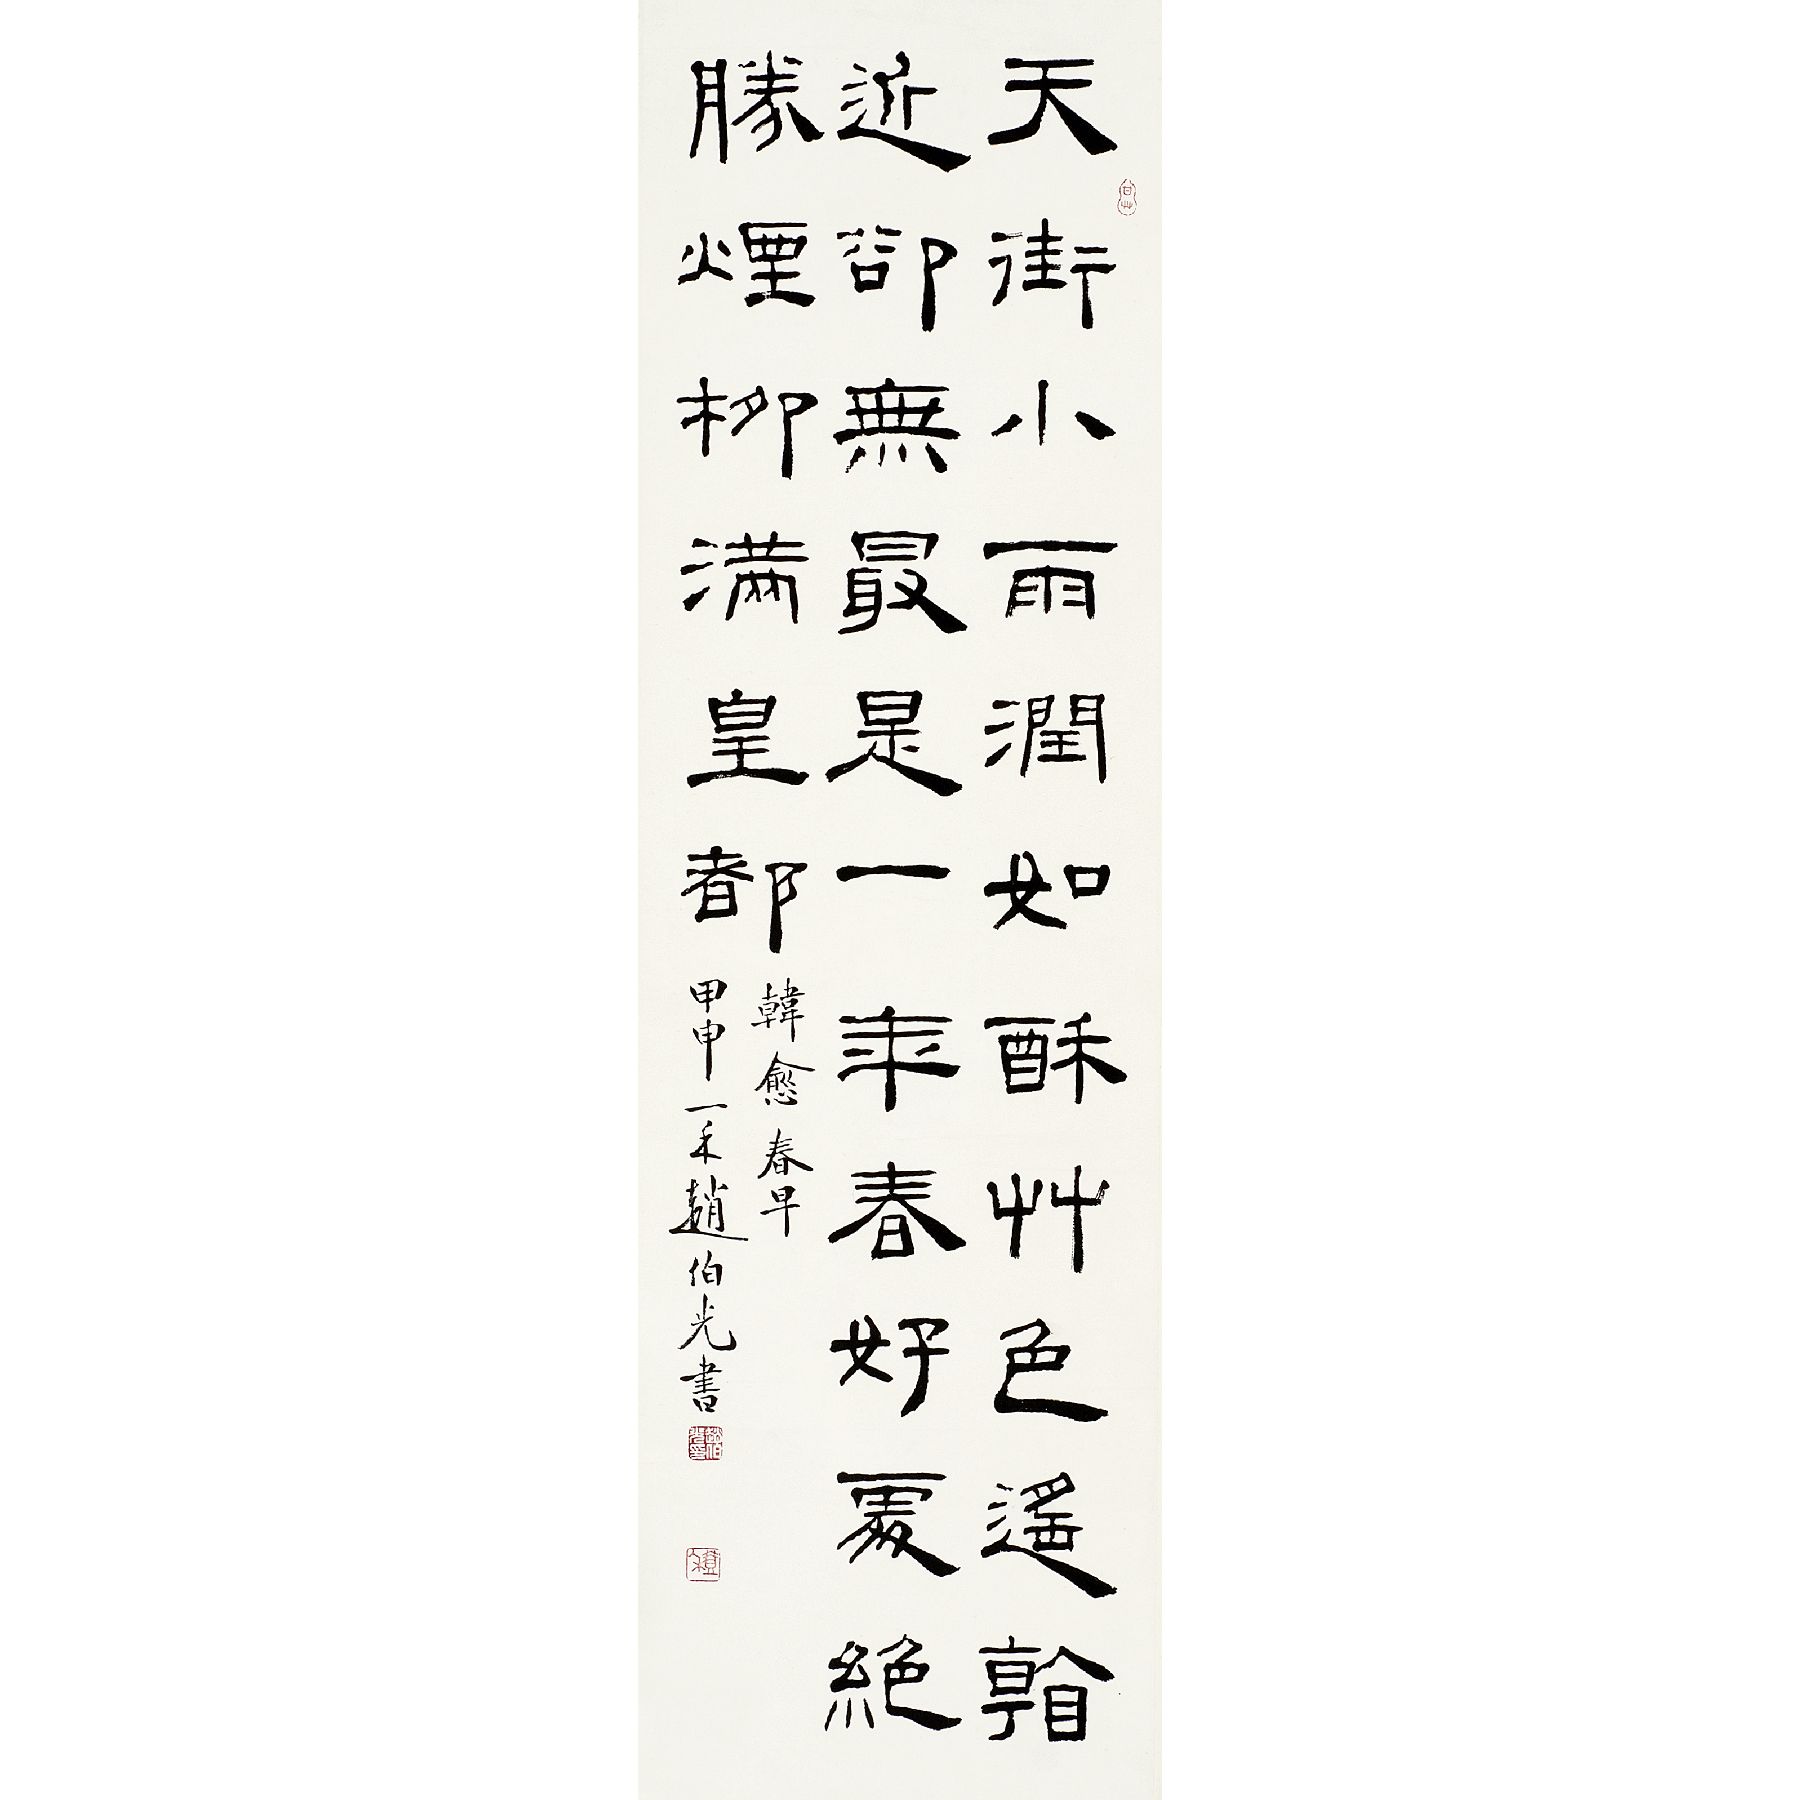 天街小雨潤如酥艸色遙看
近卻無最是一年春好處絕
勝煙柳滿皇都
韓愈春早
甲申一禾趙伯光書